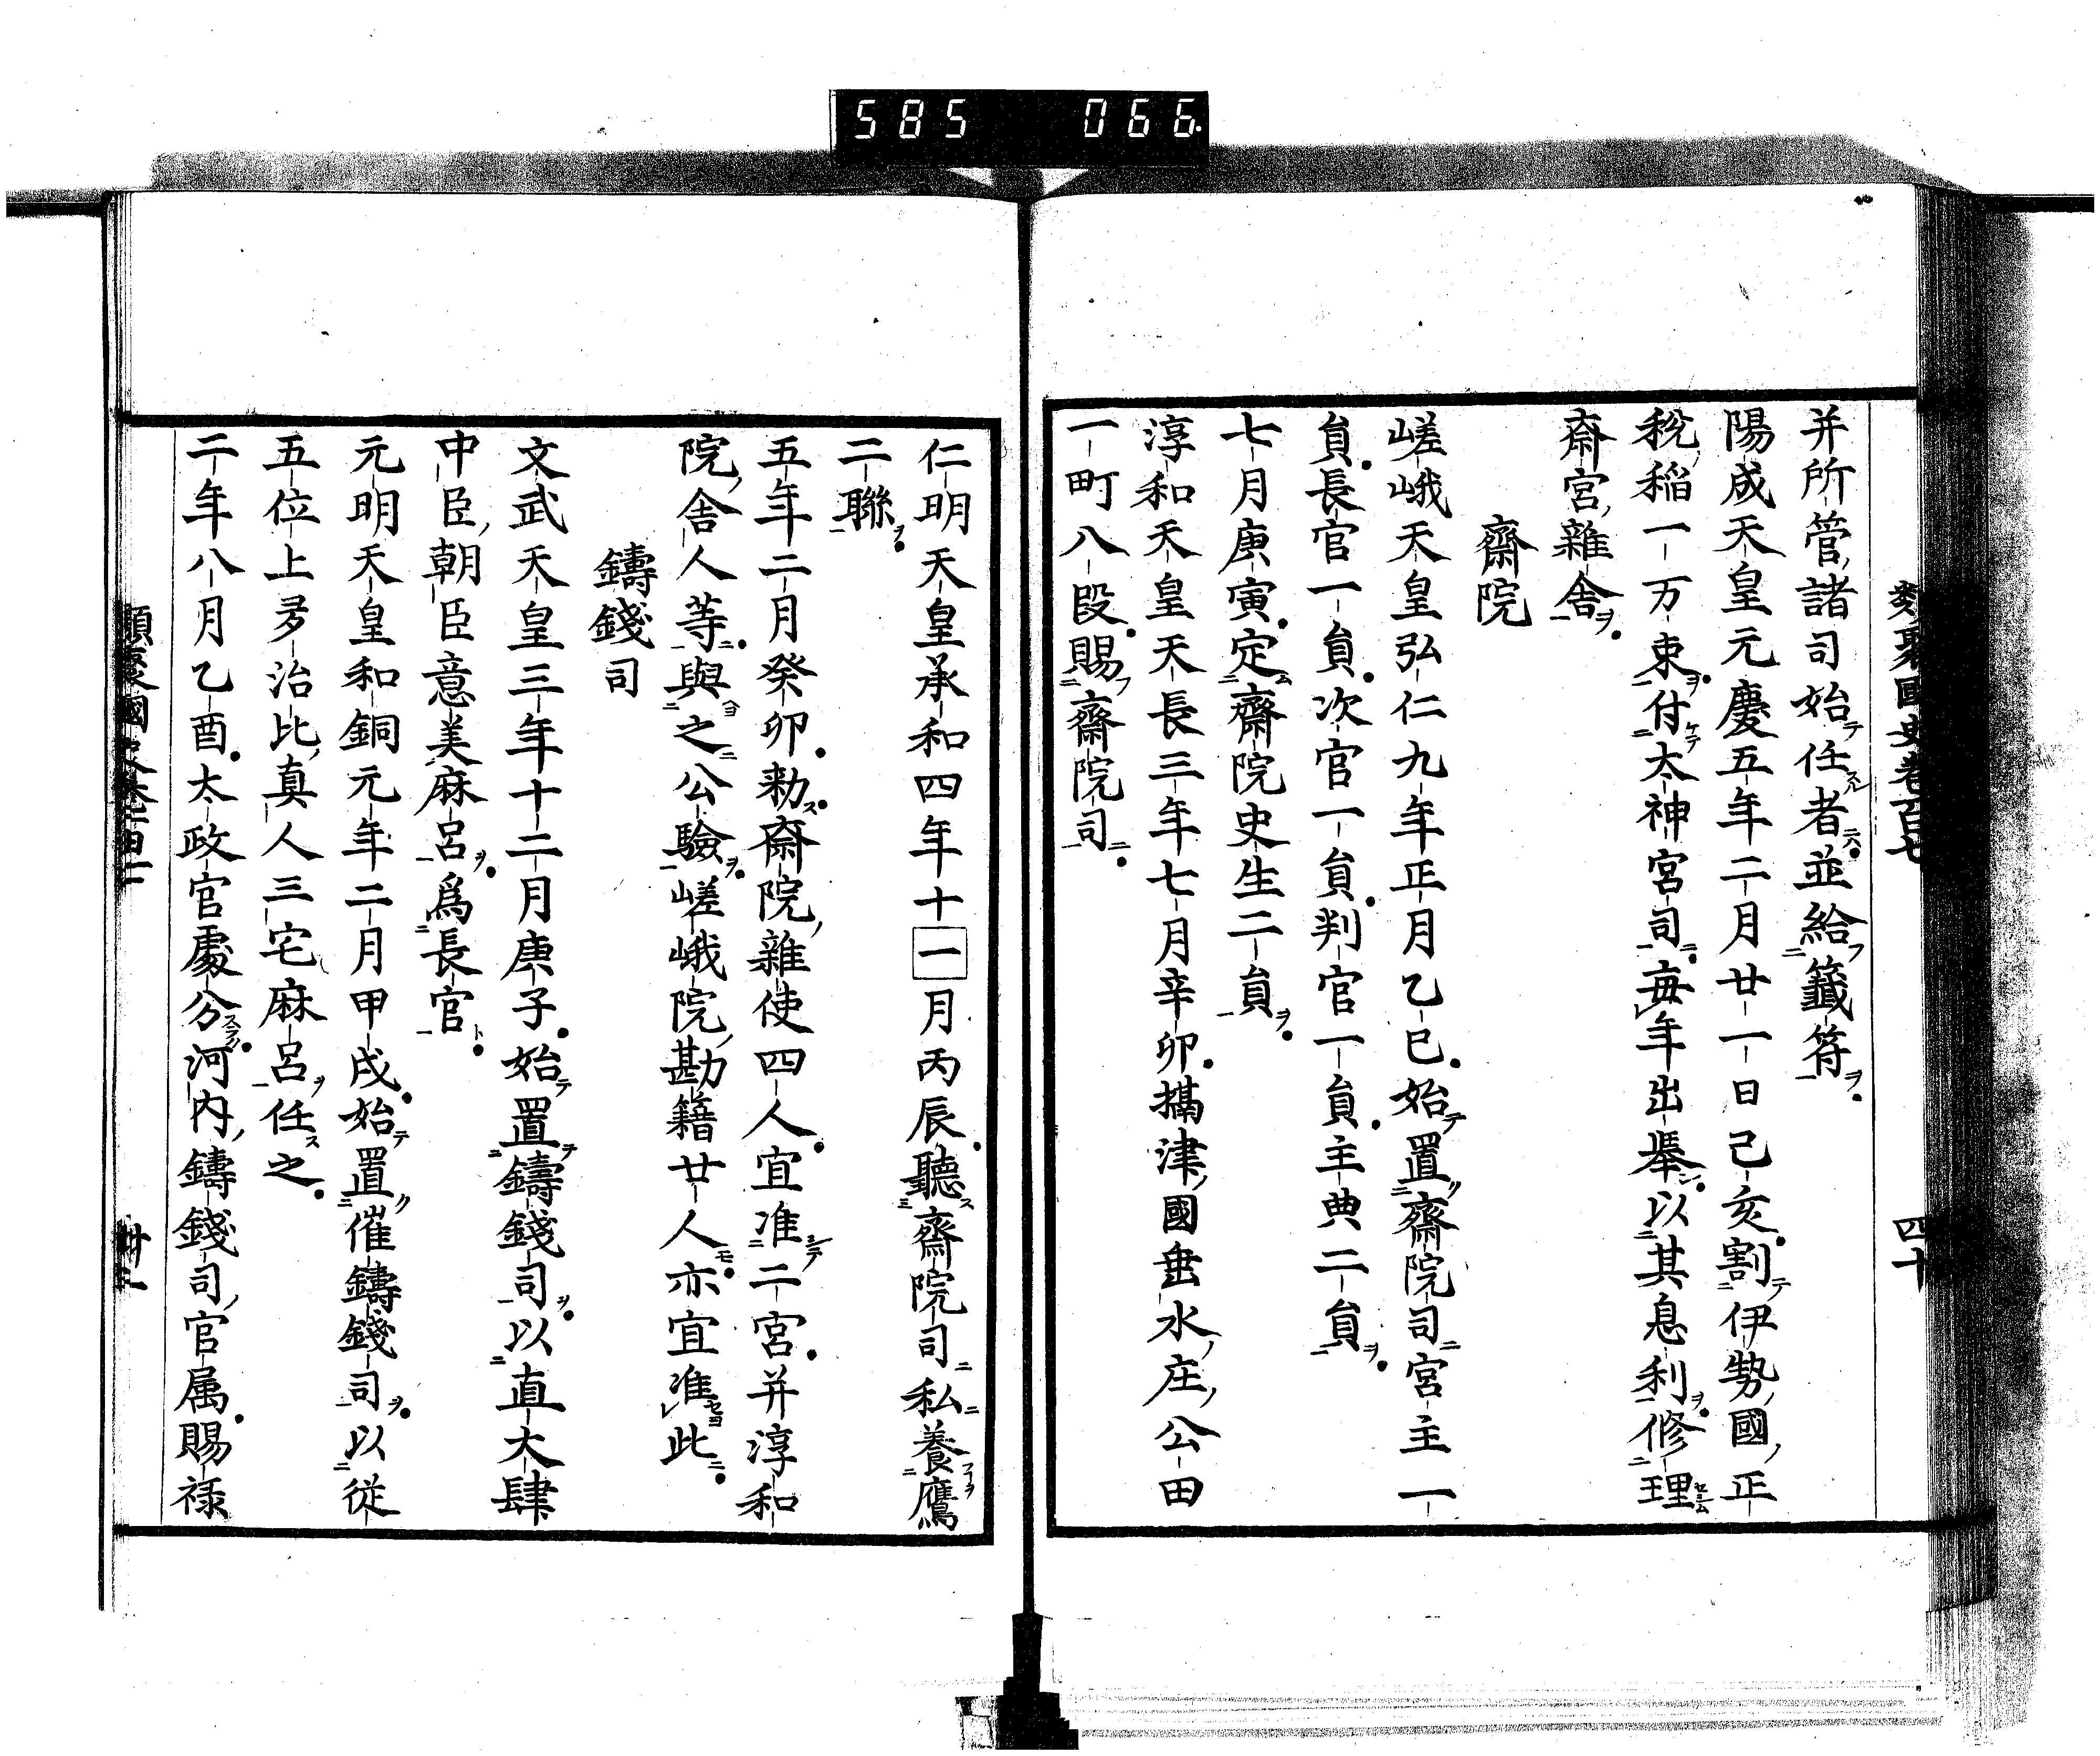 585 066
类聚國史卷百七 四十
并所管諸司始任者並給籤符
陽成天皇元慶五年二月廿一日己亥割伊勢國正
稅稲一万束付太神宮司毎年出擧以其息利修理
齋宮雜舎
齋院
嵯峨天皇弘仁九年正月乙巳始置齋院司宮主一
貟長官一貟次官一貟判官一貟主典二貟
七月庚寅定齋院史生二貟
淳和天皇天長三年七月辛卯摂津國垂水庄公田
一町八段賜齋院司
仁明天皇承和四年十一月丙辰聽齋院司私養鷹
二聯
五年二月癸卯勅齋院雜使四人宜准二宮并淳和
院舎人等與之公驗嵯峨院勘籍廿人亦宜准此
鑄錢司
文武天皇三年十二月庚子始置鑄錢司以直大肆
中臣朝臣意美麻呂爲長官
元明天皇和銅元年二月甲戌始置催鑄錢司以従
五位上多治比真人三宅麻呂任之
二年八月乙酉太政官處分河内鑄錢司官属賜祿
類聚國史